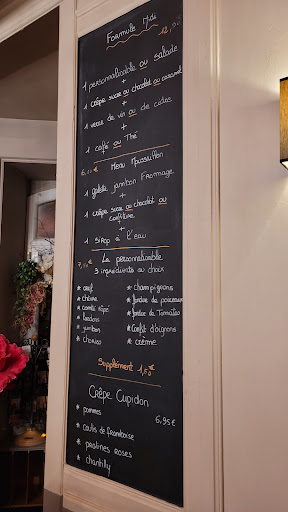 Formule Midi
12,90€
1 personnalisable ou salade
+
1 crêpe sucre ou chocolat ou caramel
+
1 verre de vin ou de cidre
+
1 café ou Thé
Menu Moussaillon
1 galette jambon Fromage
+
1 crêpe sucre ou chocolat ou
confiture
+
1 sirop à l'eau
La personnalisable
3 ingrédients au choix
* œuf
* chèvre
* comté râpé
* lardons
* jambon
* chorizo
* champignons
* fondue de poireaux
* fondue de Tomates
* confit d'oignons
* crème
Supplément 1,50€
Crêpe Cupidon
6,95€
* pommes
* coulis de framboise
* pralines roses
* chantilly